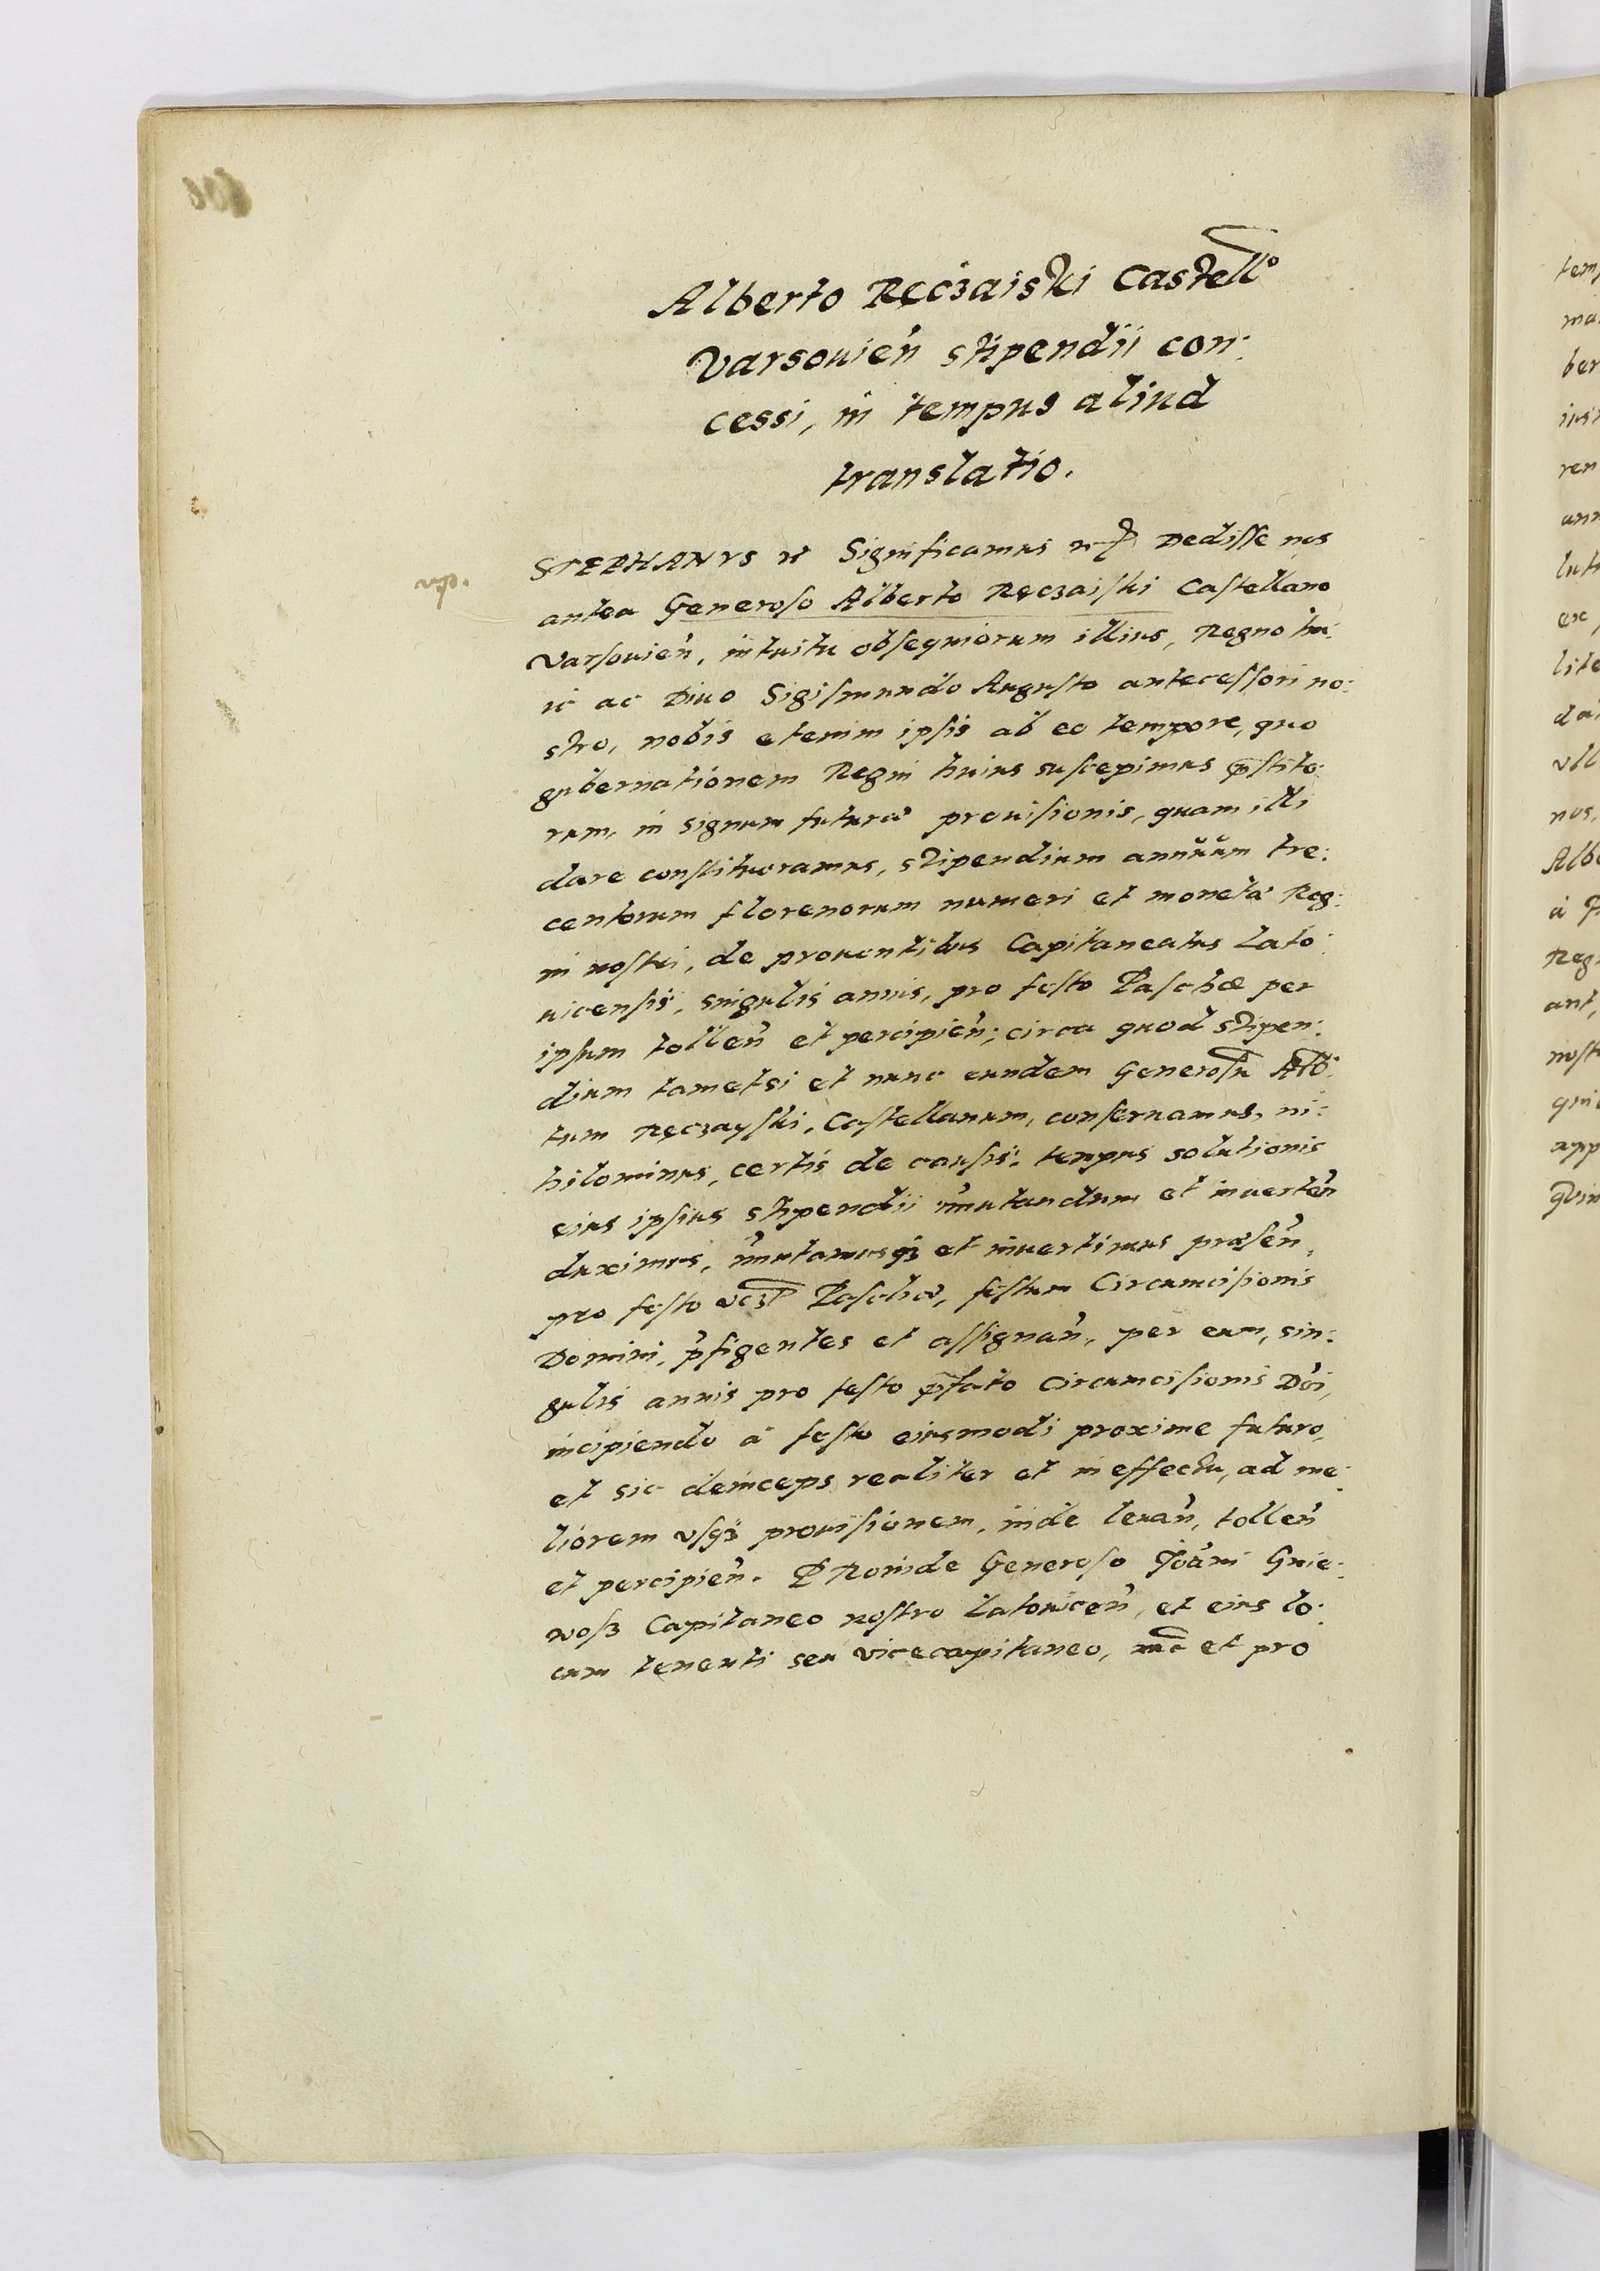 Alberto Ręczaiski Castell°
Varsouień stipendii con:
cessi, in tempus aliud
translatio.
STEPHANVS Significamus Dedisse nos
antea Generoso Alberto Ręczaiski Castellano
Varsouień, intuitu obsequiorum illius, Regno hu:
ic ac Diuo Sigismundo Augusto antecessori no:
stro, nobis etenim ipsis ab eo tempore, quo
gubernationem Regni huius suscepimus p̄stito:
rum, in signum futuræ prouisionis, quam illi
dare constitueramus, stipendium annuum tre:
centorum florenorum numeri et monetæ Reg:
ni nostri, de prouentibus Capitaneatus Lato:
uicensis, singulis annis, pro festo Paschæ per
ipsum tolleń et percipień; circa quod stipen:
dium tametsi et nunc eundem Generosū Alb:
tum Ręczayski, Castellanum, conseruamus, ni:
hilominus, certis de causis, tempus solutionis
eius ipsius stipendii im̄utandum et inuerteń
duximus, im̄utamusq3 et inuertimus præseń,
pro festo vcz Paschæ, festum Circumcisionis
Domini, p̄figentes et assignań, per eum, sin:
gulis annis pro festo p̄fato Circumcisionis Dn̄i,
incipiendo à festo eiusmodi proxime futuro,
et sic deinceps realiter et in effectu, ad me:
liorem vsq3 prouisionem, inde leuań, tolleń
et percipień. PRoinde Generoso Joān̄i Gnie:
wosz Capitaneo nostro Latouiceń, et eius lo:
cum tenenti seu vicecapitaneo, et pro